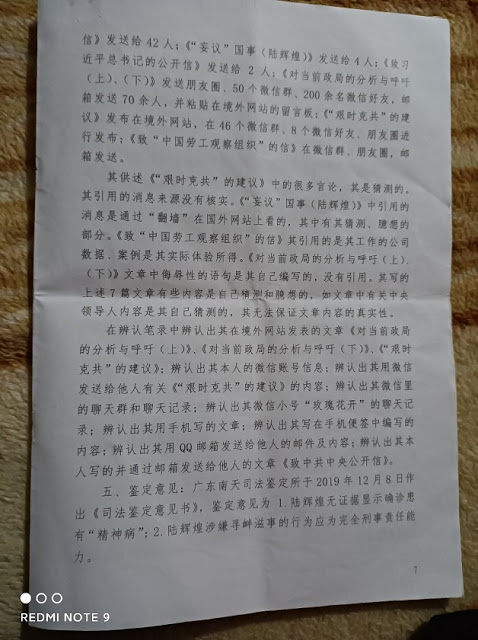 信》发送给 42 人；《“妄议”国事（陆辉煌）》发送给 4 人；《致习
近平总书记的公开信》发送给 2 人；《对当前政局的分析与呼吁
（上）、（下）》发送朋友圈、50 个微信群、200 余名微信好友，邮
箱发送 70 余人，并粘贴在境外网站的留言板；《“艰时克共”的建
议》发布在境外网站，在 46 个微信群、8 个微信好友、朋友圈进
行发布；《致“中国劳工观察组织”的信》在微信群、朋友圈，邮
箱发送。
其供述《“艰时克共”的建议》中的很多言论，其是猜测的。
其引用的消息来源没有核实。《“妄议”国事（陆辉煌）》中引用的
消息是通过“翻墙”在国外网站上看的，其中有其猜测、臆想的
部分。《致“中国劳工观察组织”的信》其引用的是其工作的公司
数据、案例是其实际体验所得。《对当前政局的分析与呼吁（上）、
（下）》文章中侮辱性的语句是其自己编写的，没有引用。其写的
上述 7 篇文章有些内容是自己猜测和臆想的，如文章中有关中央
领导人内容是其自己猜测的，其无法保证文章内容的真实性。
在辨认笔录中辨认出其在境外网站发表的文章《对当前政局
的分析与呼吁（上）》、《对当前政局的分析与呼吁（下）》、《“艰时
克共”的建议》；辨认出其本人的微信账号信息；辨认出其用微信
发送给他人有关《“艰时克共”的建议》的内容；辨认出其微信里
的聊天群和聊天记录；辨认出其微信小号“玫瑰花开”的聊天记
录；辨认出其用手机写的文章；辨认出其写在手机便签中编写的
内容；辨认出其用 QQ 邮箱发送给他人的邮件及内容；辨认出其本
人写的并通过邮箱发送给他人的文章《致中共中央公开信》。
五、鉴定意见：广东南天司法鉴定所于 2019 年 12 月 8 日作
出《司法鉴定意见书》，鉴定意见为 1.陆辉煌无证据显示确诊患
有“精神病”；2.陆辉煌涉嫌寻衅滋事的行为应为完全刑事责任能
力。
7
REDMI NOTE 9